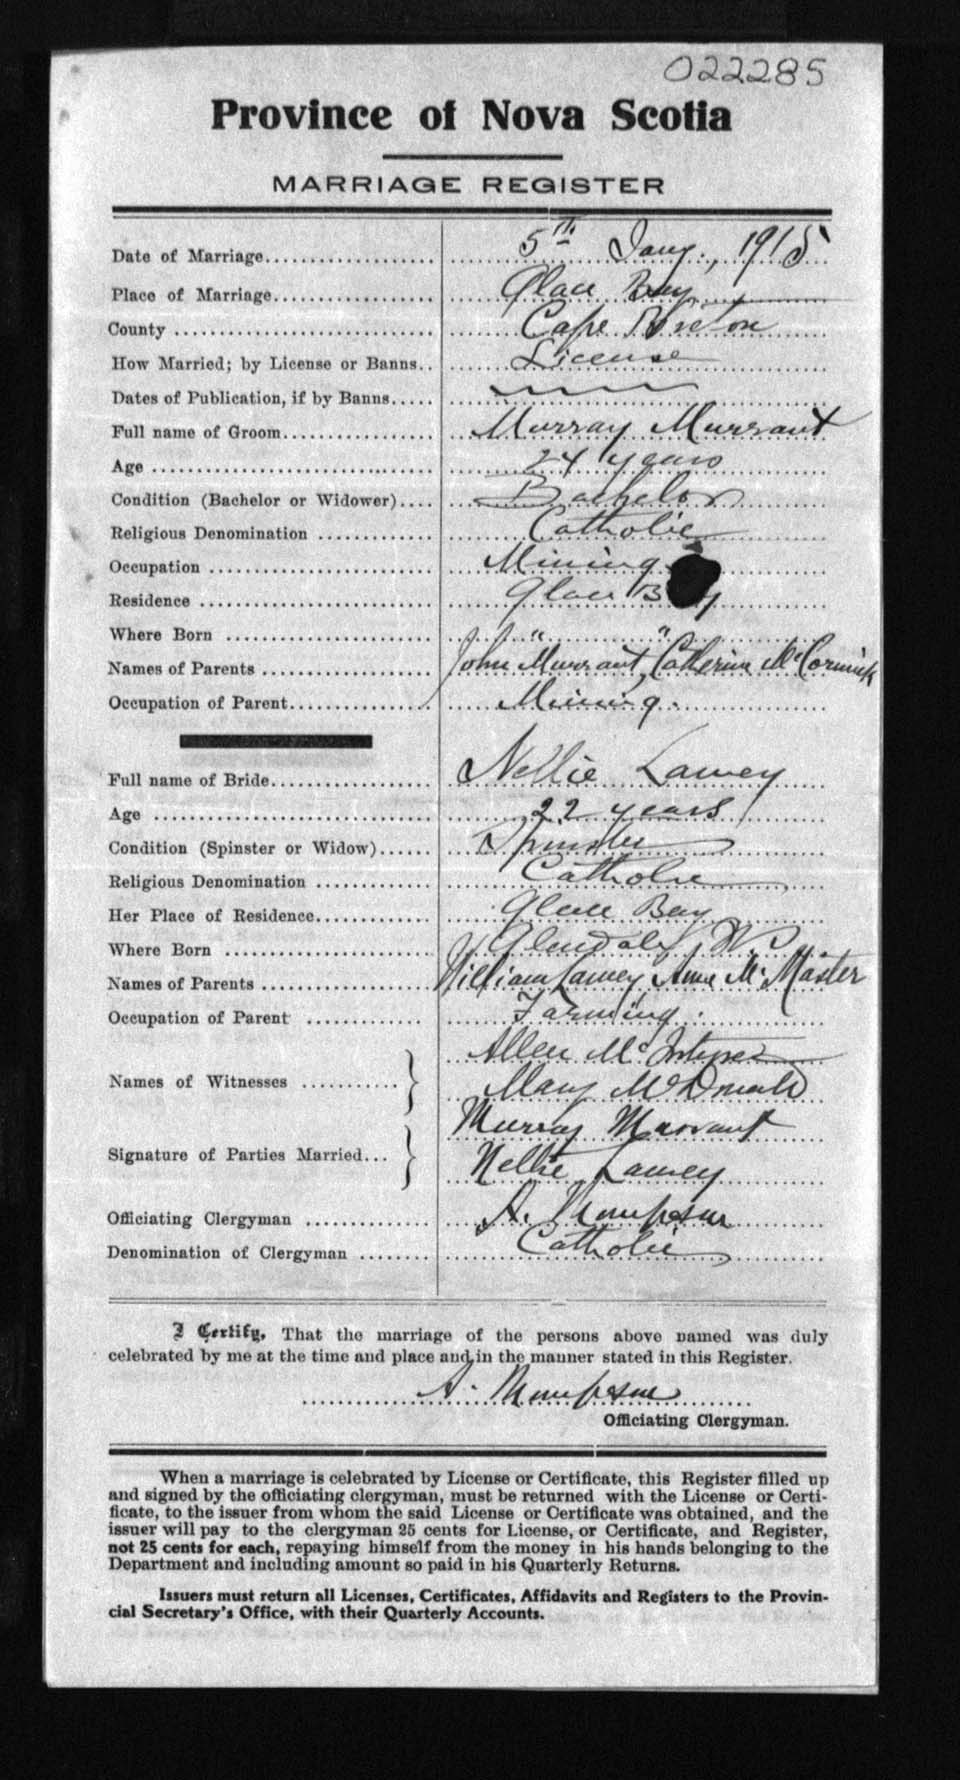 022285
Province of Nova Scotia
MARRIAGE REGISTER
Date of Marriage 5th Jany., 1915
Place of Marriage Glace Bay
County Cape Breton
How Married; by License or Banns License
Dates of Publication, if by Banns
Full name of Groom Murray Murrant
Age 24 years
Condition (Bachelor or Widower) Bachelor
Religious Denomination Catholic
Occupation Mining
Residence Glace Bay
Where Born " "
Names of Parents John Murrant, Catherine McCormick
Occupation of Parent Mining.
Full name of Bride Nellie Lamey
Age 22 years
Condition (Spinster or Widow) Spinster
Religious Denomination Catholic
Her Place of Residence Glace Bay
Where Born Glendale,
Names of Parents William Lamey Anne McMaster
Occupation of Parent Farming.
Names of Witnesses Allen McIntyre
Mary McDonald
Signature of Parties Married Murray Murrant
Nellie Lamey
Officiating Clergyman A. Thompson
Denomination of Clergyman Catholic
I Certify, That the marriage of the persons above named was duly
celebrated by me at the time and place and in the manner stated in this Register.
A. Thompson
Officiating Clergyman.
When a marriage is celebrated by License or Certificate, this Register filled up
and signed by the officiating clergyman, must be returned with the License or Certi-
ficate, to the issuer from whom the said License or Certificate was obtained, and the
issuer will pay to the clergyman 25 cents for License, or Certificate, and Register,
not 25 cents for each, repaying himself from the money in his hands belonging to the
Department and including amount so paid in his Quarterly Returns.
Issuers must return all Licenses, Certificates, Affidavits and Registers to the Provin-
cial Secretary's Office, with their Quarterly Accounts.